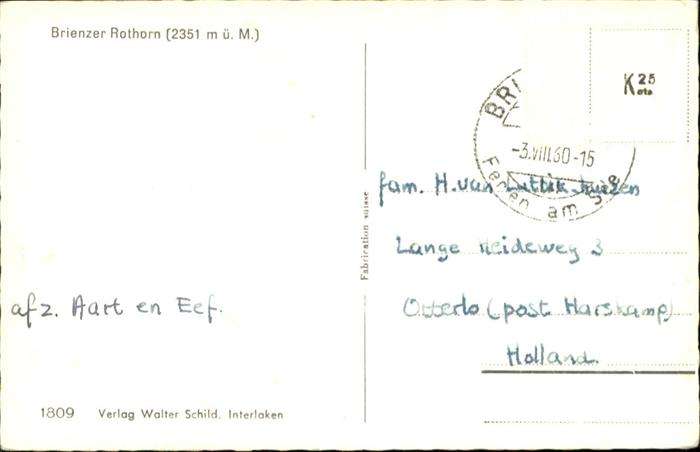 Brienzer Rothorn (2351 m ü. M.)
K 25
cts
BRI
-3.VIII.60-15
Ferien am See
fam. H. van
Lange Heideweg 3
Otterlo (post Harskamp)
Holland.
afz. Aart en Eef.
Fabrication suisse
1809 Verlag Walter Schild, Interlaken